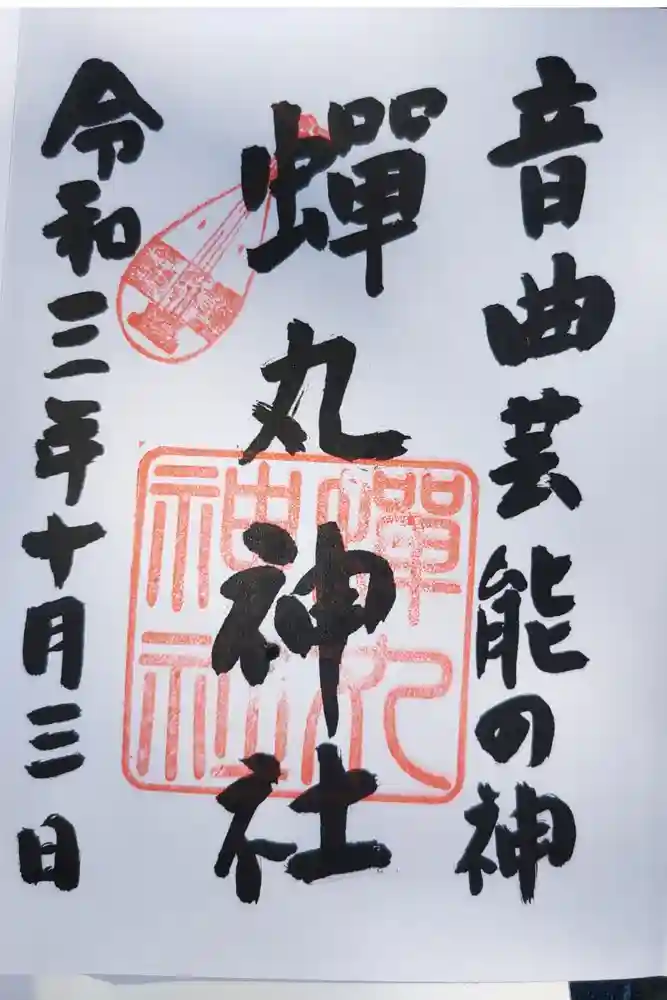 音曲芸能の神
蟬丸神社
蟬丸神社
令和三年十月三日